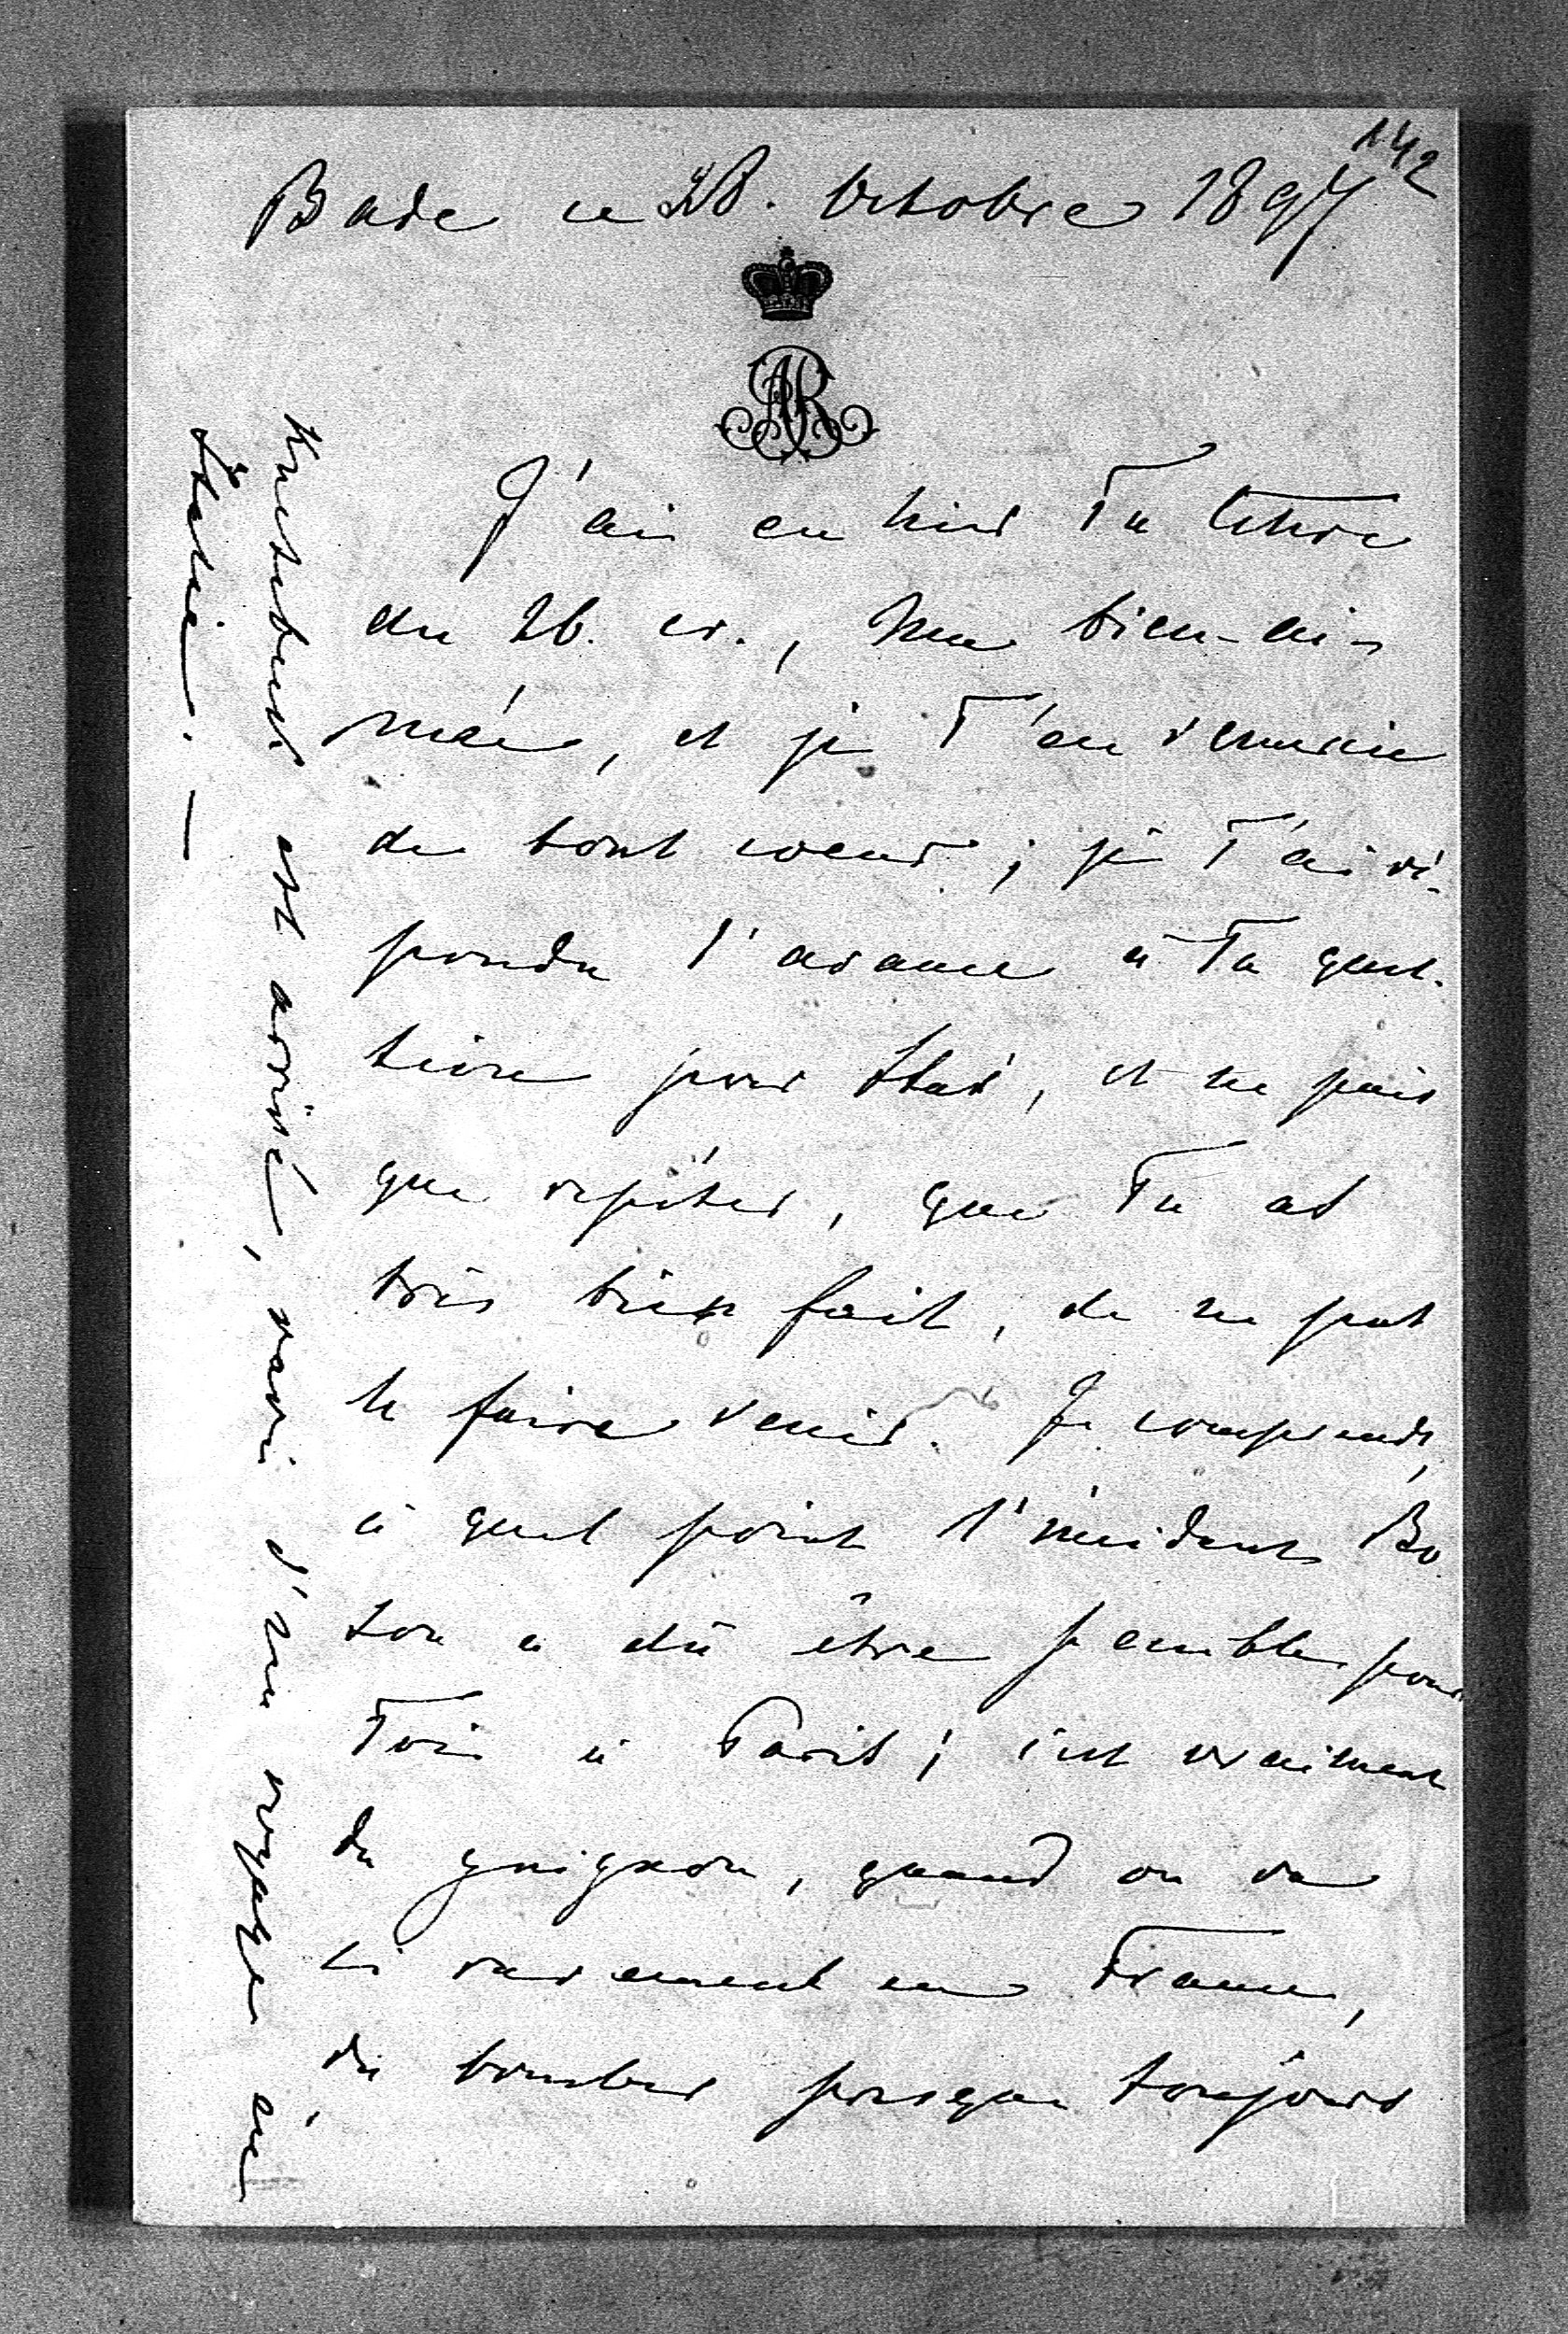 142
Bade ce 28. Octobre 1897
AR
J'ai eu hier Ta lettre
du 26. cr., Ma bien-ai-
mée, et je T'en remercie
de tout coeur; je T'ai ré-
pondu d'avance à Ta ques-
tion pour et ne puis
que repéter, que Tu as
très bien fait, de ne pas
le faire venir. Je comprends,
à quel point l'incident Bo
zon a dû être penible pour
Toi à Paris; c'est vraiment
du guignon, quand on va
si rarement en France,
de tomber presque toujours
est arrivé, ravi d'un voyage en
Italie. —